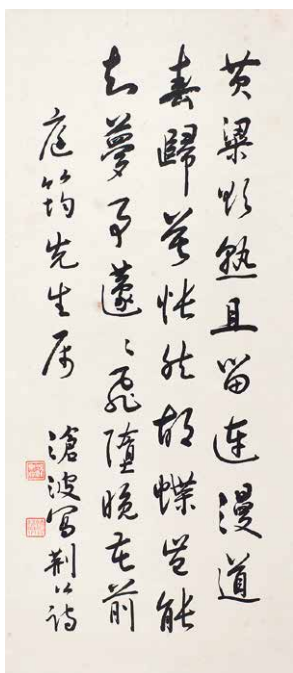 黄粱欲熟且留連漫道
春歸莫悵然胡蝶豈能
知夢事蘧〻飛墮晚花前
庭筠先生属 滄波寫荆公詩